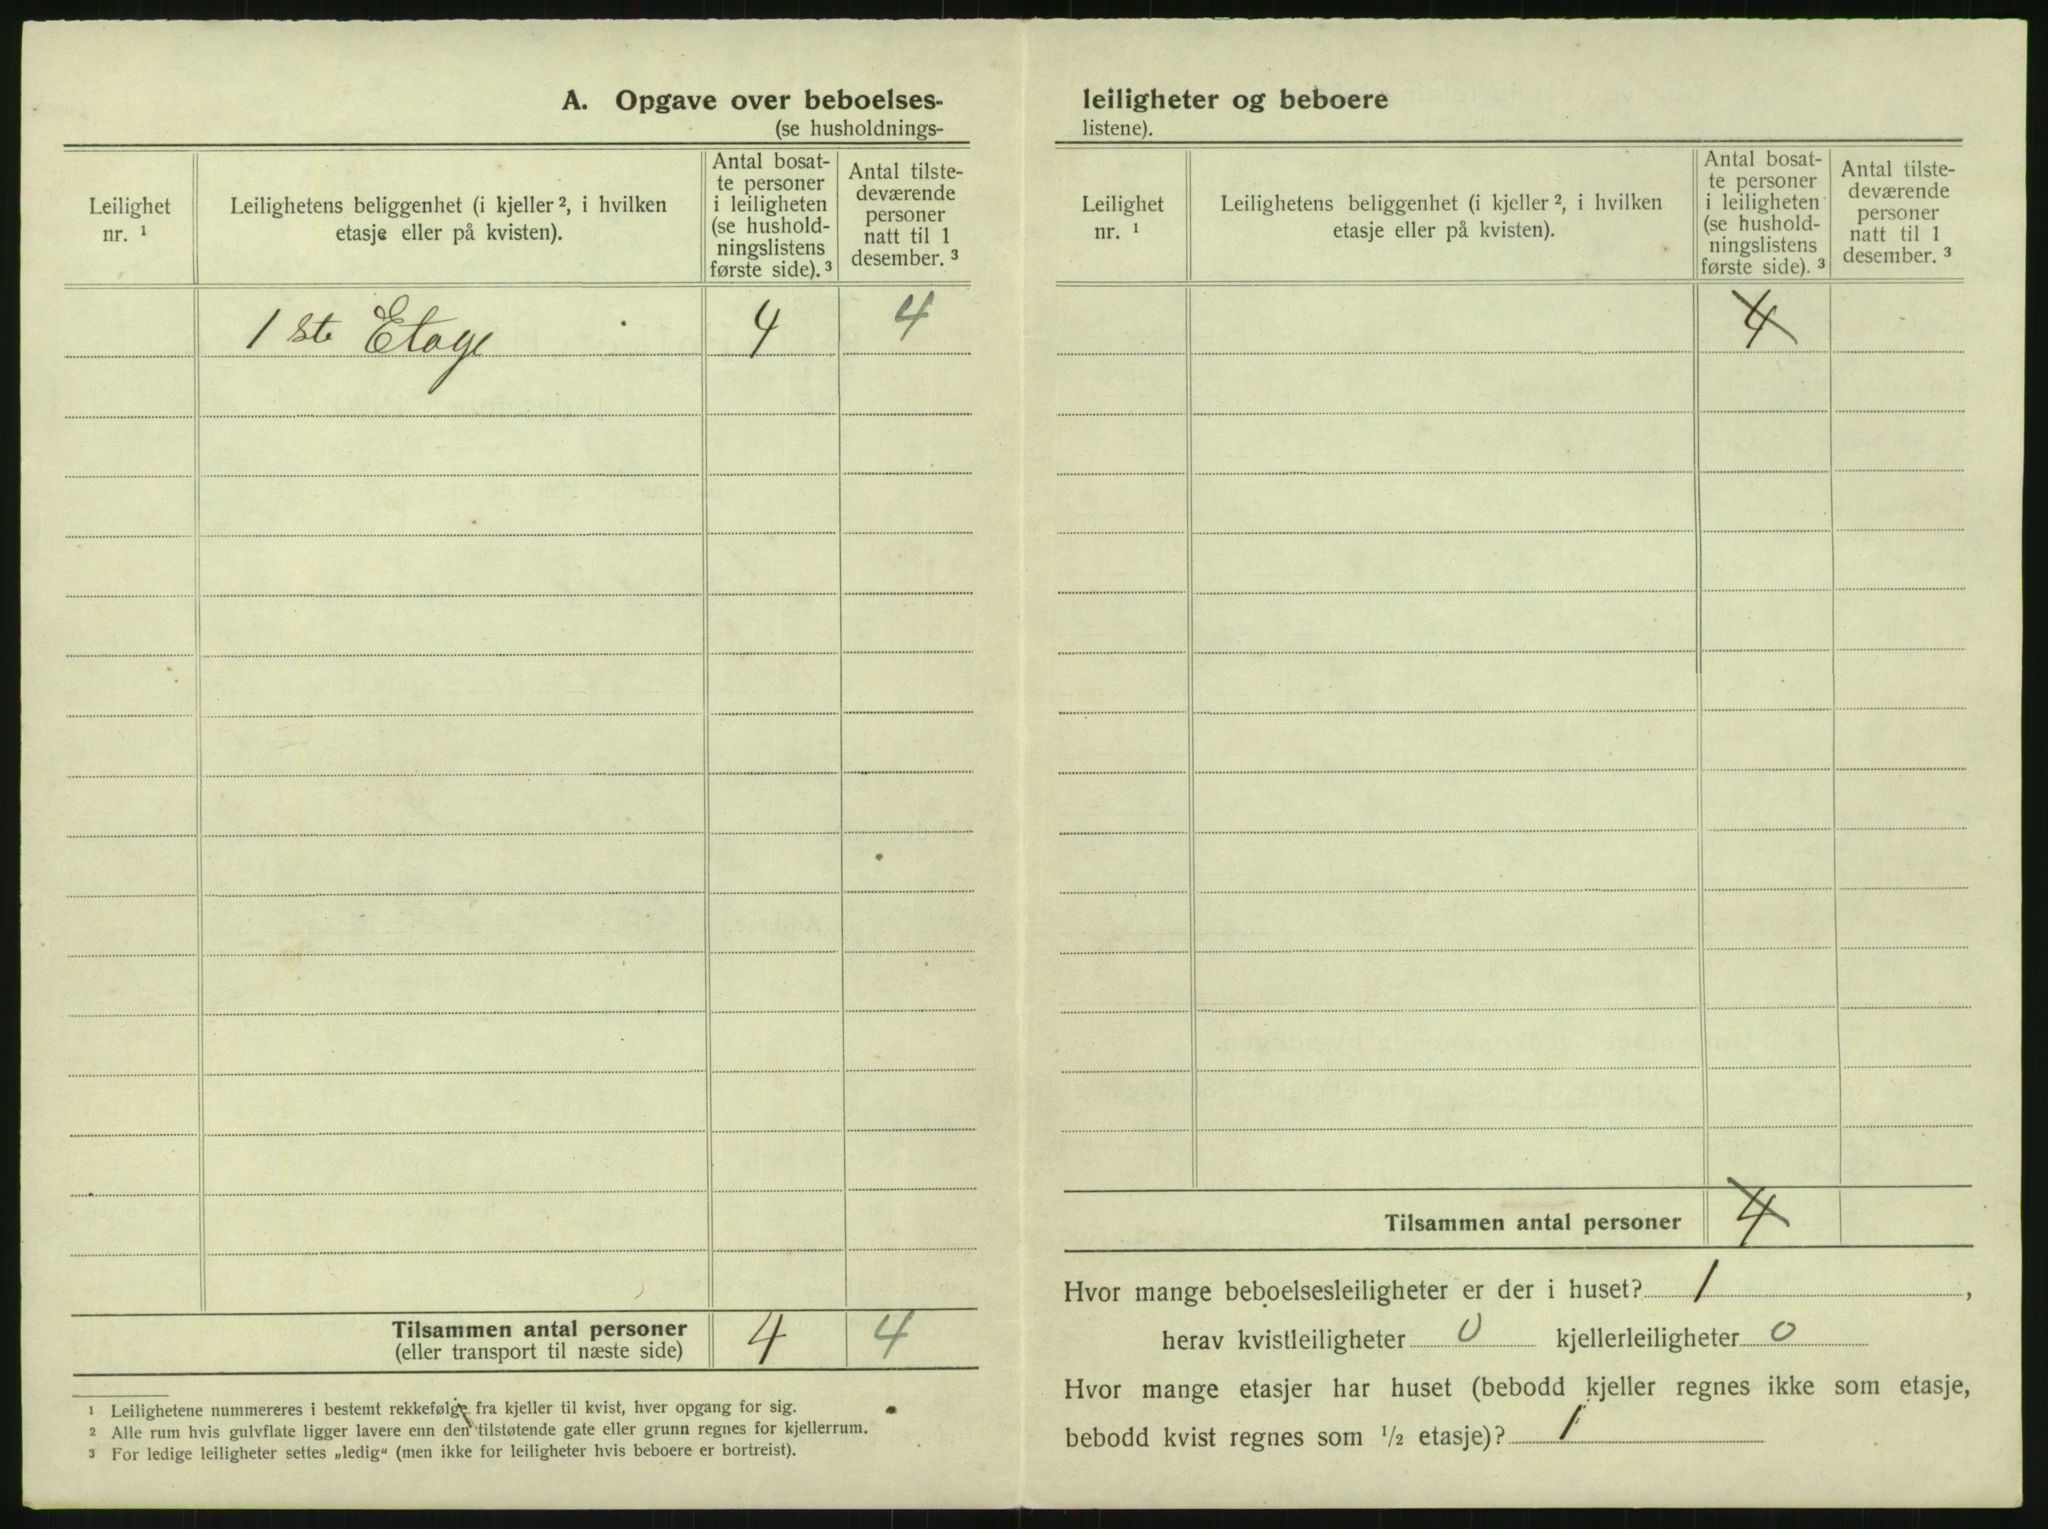 A. Opgave over beboelses-
(se husholdnings-
Leilighet
nr. ¹
Leilighetens beliggenhet (i kjeller ², i hvilken
etasje eller på kvisten).
Antal bosat-
te personer
i leiligheten
(se hushold-
ningslistens
første side). ³
Antal tilste-
deværende
personer
natt til 1
desember. ³
1 ste Etage 4 4
Tilsammen antal personer 4 4
(eller transport til næste side)
¹ Leilighetene nummereres i bestemt rekkefølge fra kjeller til kvist, hver opgang for sig.
² Alle rum hvis gulvflate ligger lavere enn den tilstøtende gate eller grunn regnes for kjellerrum.
³ For ledige leiligheter settes „ledig“ (men ikke for leiligheter hvis beboere er bortreist).
leiligheter og beboere
listene).
Leilighet
nr. ¹
Leilighetens beliggenhet (i kjeller ², i hvilken
etasje eller på kvisten).
Antal bosat-
te personer
i leiligheten
(se hushold-
ningslistens
første side). ³
Antal tilste-
deværende
personer
natt til 1
desember. ³
4
Tilsammen antal personer 4
Hvor mange beboelsesleiligheter er der i huset? 1 ,
herav kvistleiligheter 0 kjellerleiligheter 0
Hvor mange etasjer har huset (bebodd kjeller regnes ikke som etasje,
bebodd kvist regnes som ½ etasje)? 1